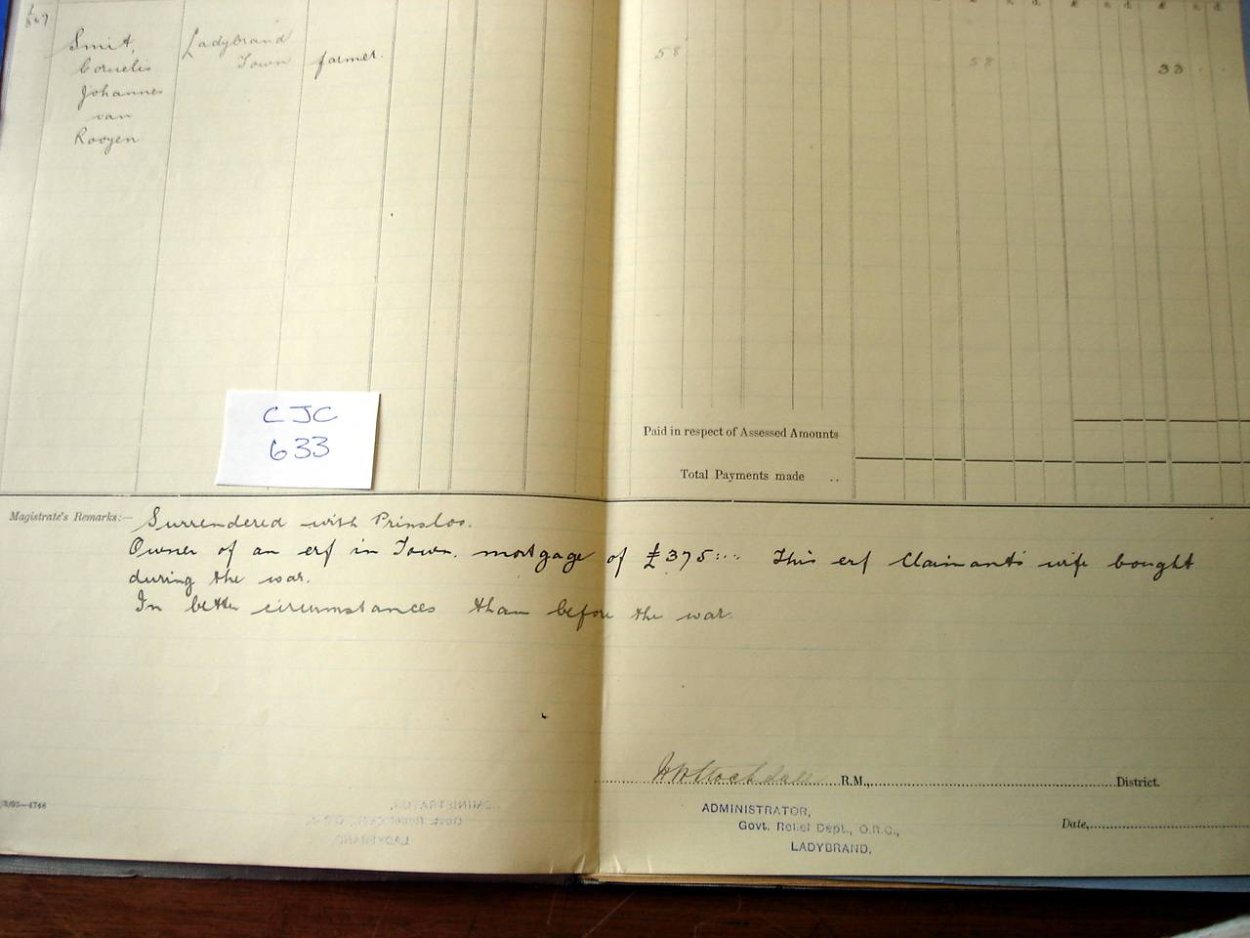 Smit,
Cornelis
Johannes
van
Rooyen
Ladybrand
Town
farmer.
58
58
33
CJC
633
Paid in respect of Assessed Amounts
Total Payments made ..
Magistrate's Remarks:— Surrendered with Prinsloo.
Owner of an erf in Town. mortgage of £375:-:- This erf Claimants wife bought
during the war.
In better circumstances than before the war.
R.M., District.
ADMINISTRATOR,
Govt. Relief Dept., O.R.C.,
LADYBRAND.
Date,